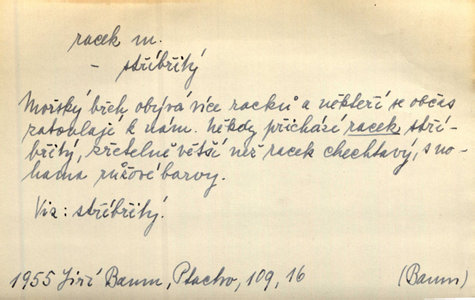 racek m.
- stříbřitý
Mořský břeh obývá více racků a někteří se občas
zatoulají k nám. Někdy přichází racek stří-
břitý, zřetelně větší než racek chechtavý, s no-
hama růžové barvy.
Viz: stříbřitý.
1955 Jiří Baum, Ptactvo, 109, 16 (Baum)